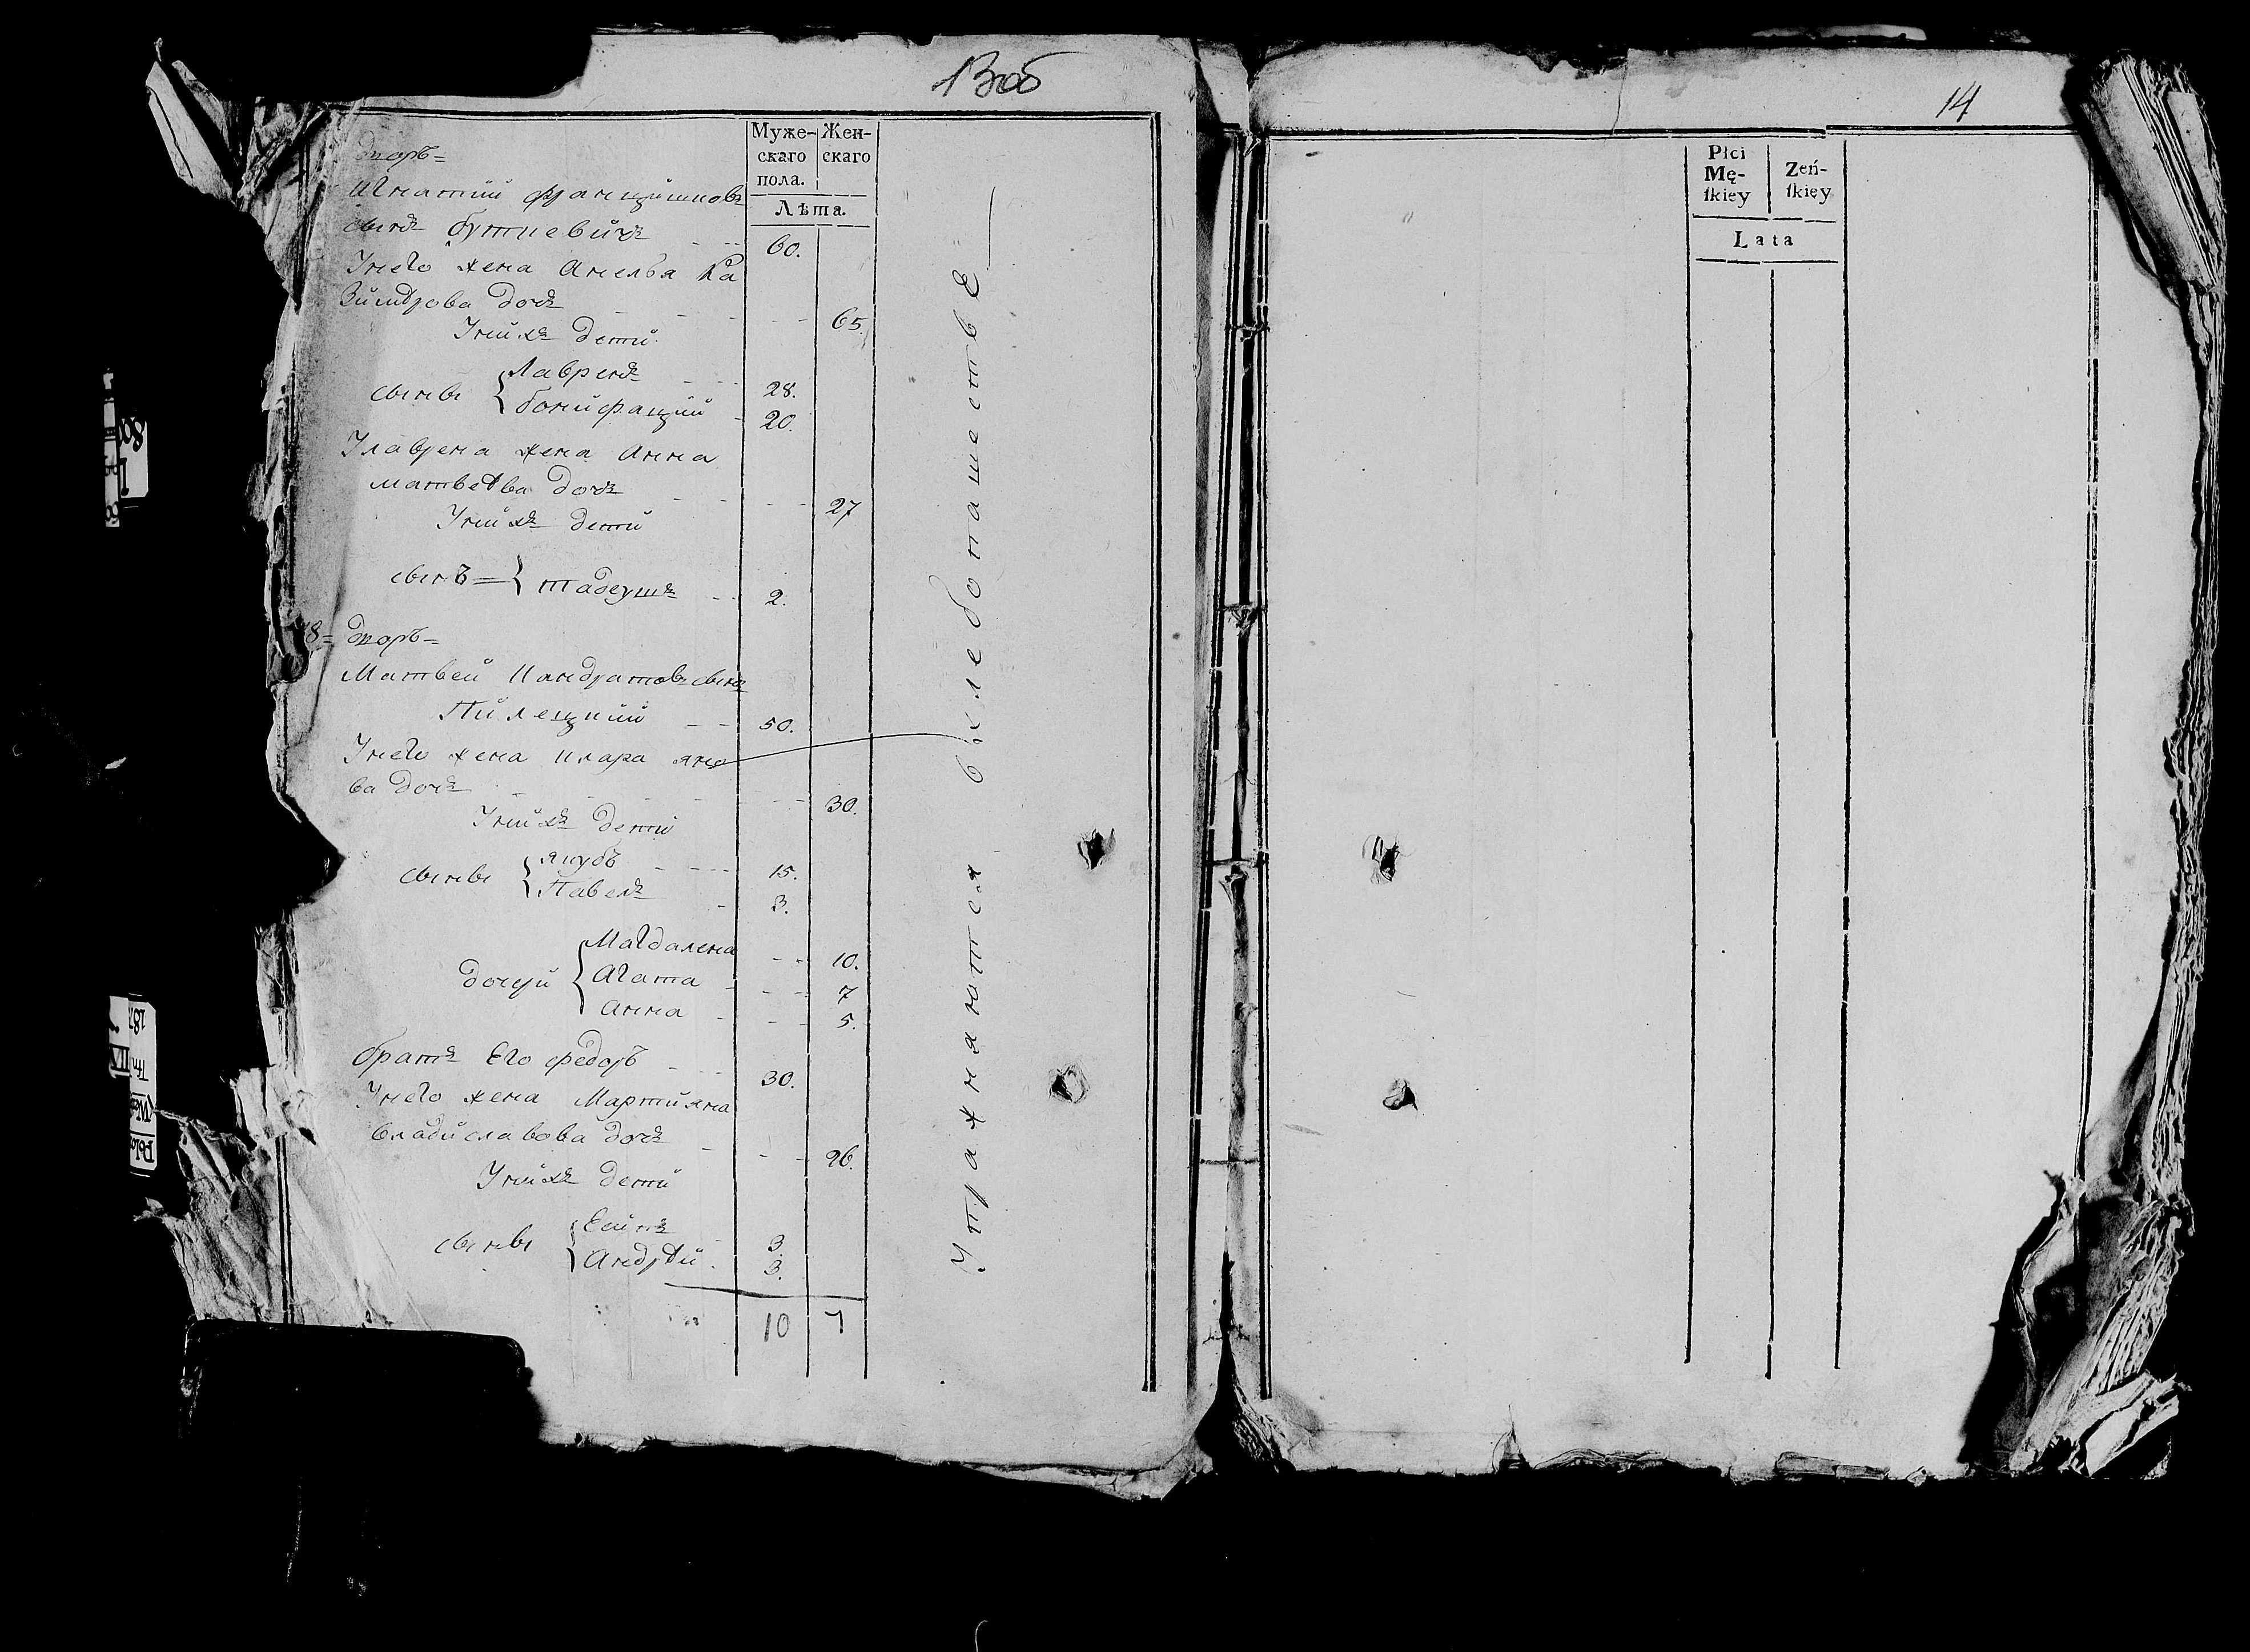 13 об
Муже- Жен-
скаго скаго
пола.
Лѣта.
дворъ=
Игнатий францишковъ
сынъ буткевичъ - - 60.
Унего жена Анелья Ка
зимерова дочь - - - - 65.
Унихъ дети
сыны { Лавренъ - - 28.
бонифаций - 20.
Улаврена жена Анна
матвеѣва дочь - - - - 27
Унихъ дети
сынъ = { тадеушъ - - 2.
8= дворъ=
Матвей Кандратовъ сынъ
Пилецкий - - 50.
Унего жена клара яно
ва дочь - - - - 30.
Унихъ дети
сыны { якубъ - - - 15.
Павелъ - 3.
дочери { Магдалена - - 10.
Агата - - - 7
Анна - - - 5.
братъ Его федоръ - - 30.
Унего жена Мартияна
владиславова дочь - - - 26.
Унихъ дети
сыны { Есипъ - 3.
Андрѣй - 3.
10 7
Упражняются в хлебопашествЕ
14
Płci
Mę-
ſkiey
Zeń-
ſkiey
Lata